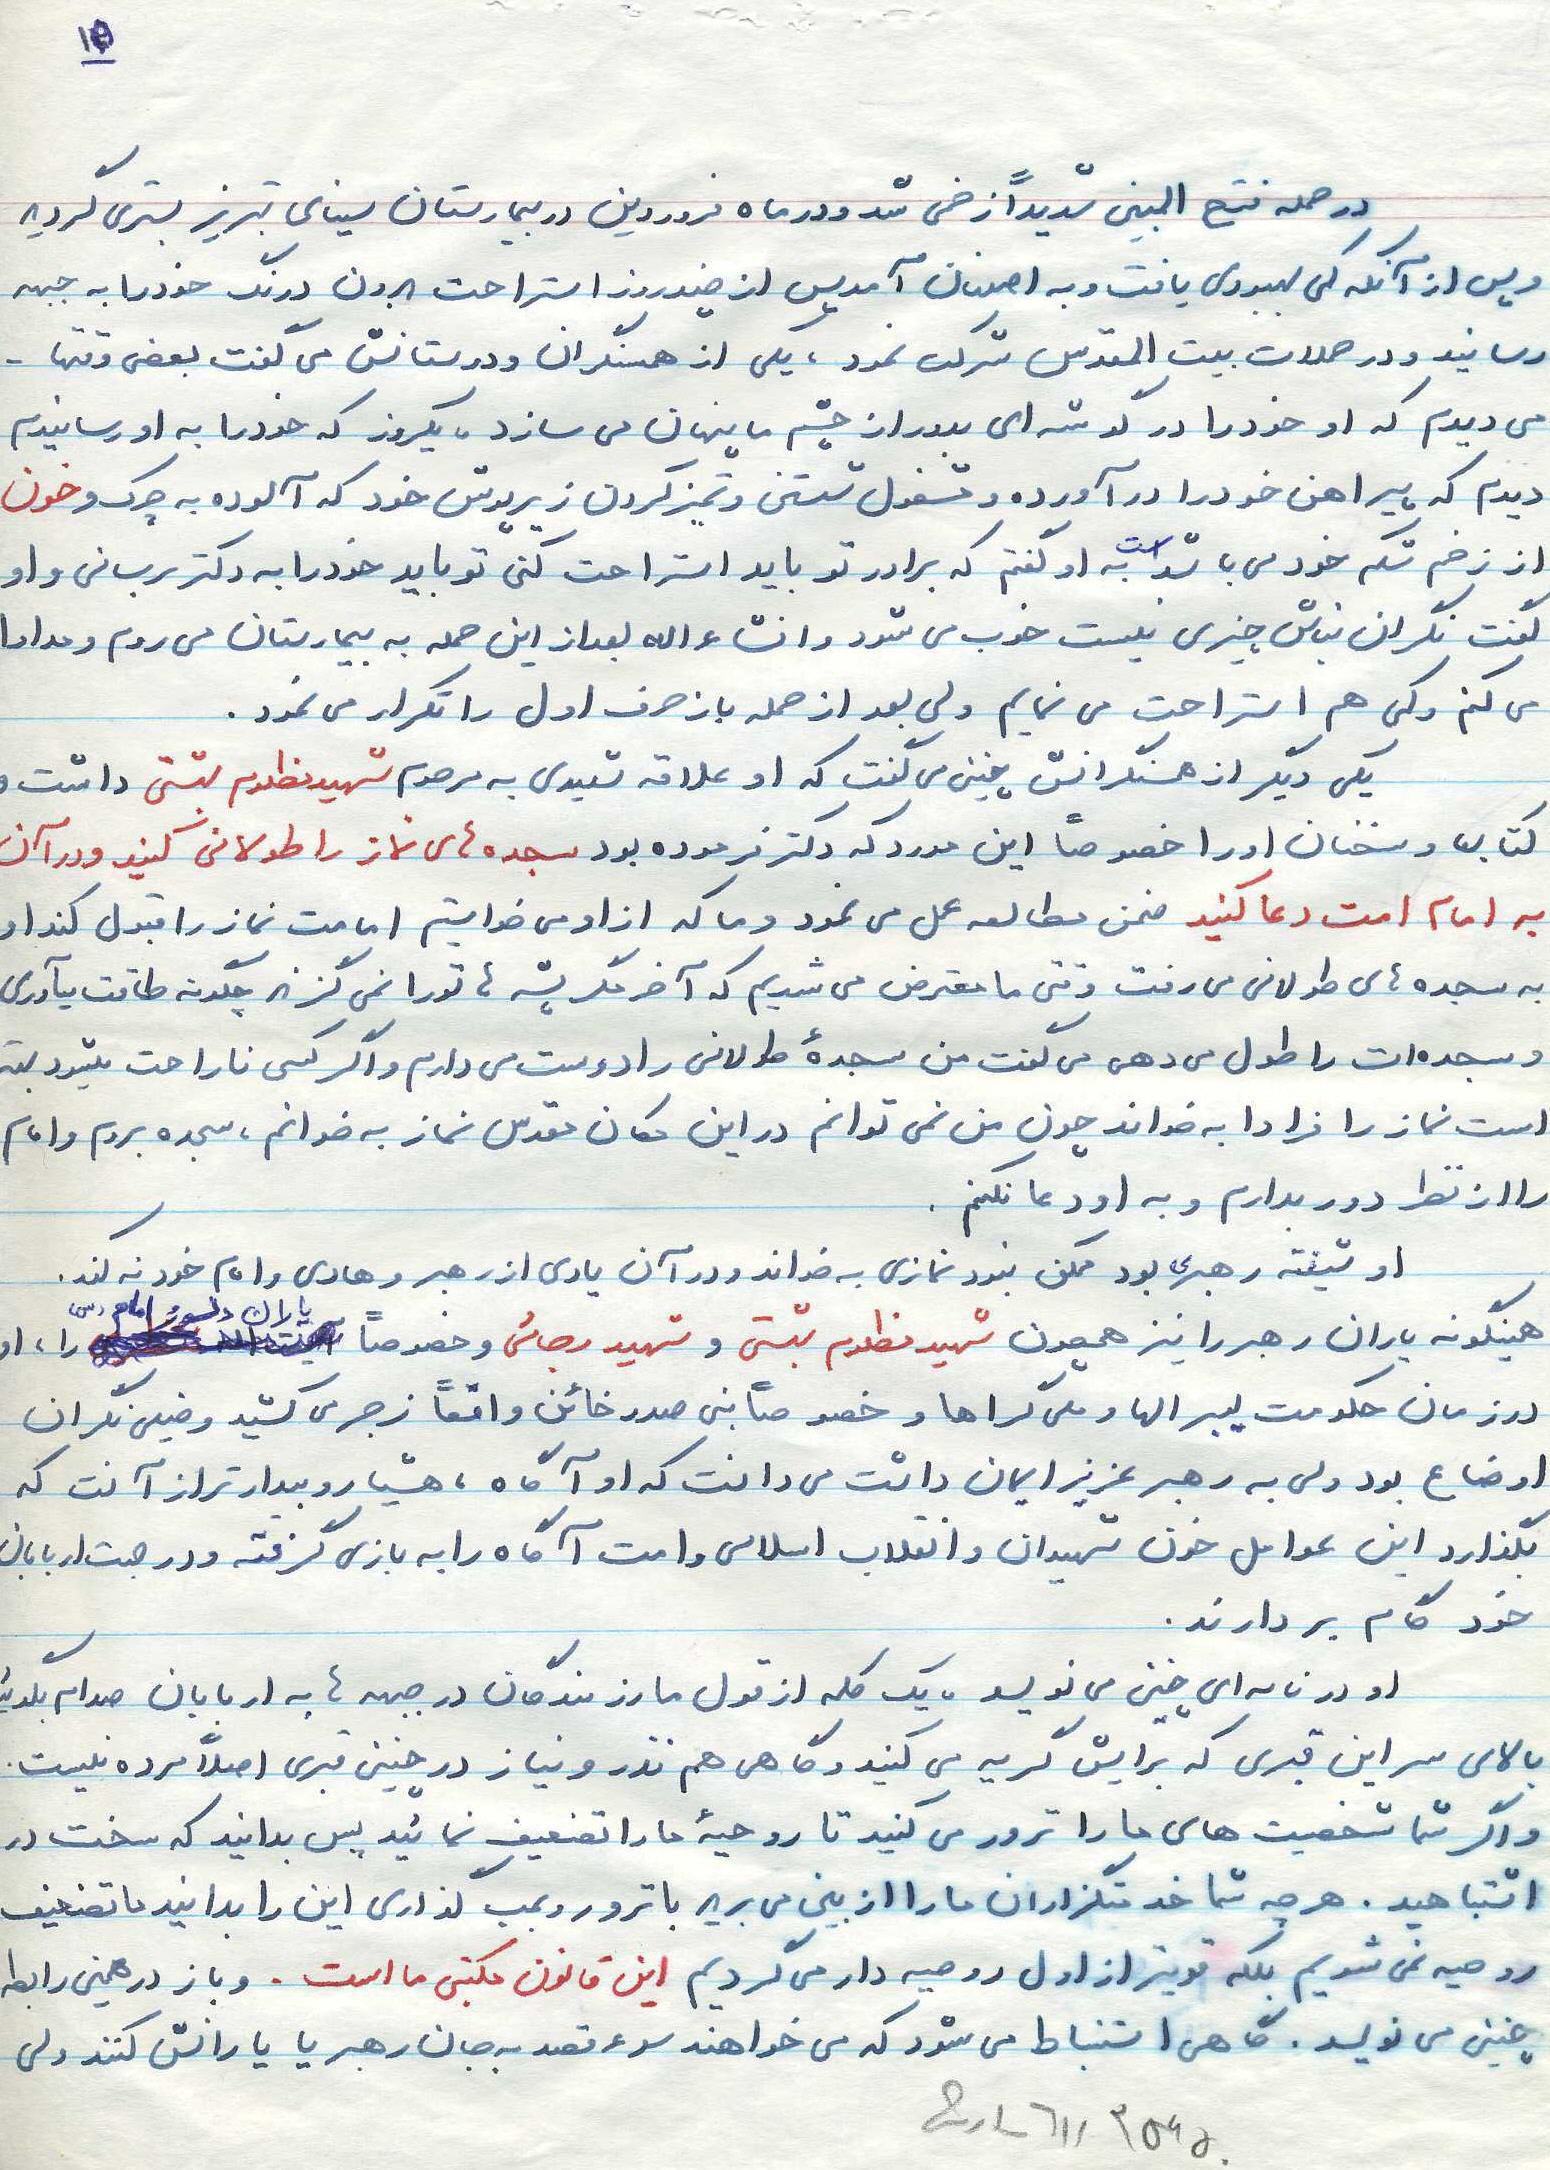 در حمله فتح المبین شدیداً زخمی شد و در ماه فروردین در بیمارستان سینای تبریز بستری گردید
و پس از آنکه کمی بهبودی یافت و به اصفهان آمد پس از چند روز استراحت بدون درنگ خود را به جبهه
رسانید و در حملات بیت المقدس شرکت نمود ، یکی از همسنگران و دوستانش می گفت بعضی وقتها -
می دیدم که او خود را در گوشه ای بدور از چشم ما پنهان می سازد ، یکروز که خود را به او رسانیدم
دیدم که پیراهن خود را در آورده و مشغول شستن و تمیز کردن زیرپوش خود که آلوده به چرک و خون
از زخم شکم خود می باشد است به او گفتم که برادر تو باید استراحت کنی تو باید خود را به دکتر برسانی و او
گفت نگران نباش چیزی نیست خوب می شود و انشاءالله بعد از این حمله به بیمارستان می روم و مداوا
می کنم و کمی هم استراحت می نمایم ولی بعد از حمله باز حرف اول را تکرار می نمود .
یکی دیگر از همسنگرانش چنین می گفت که او علاقه شدیدی به مرحوم شهید مظلوم بهشتی داشت و
کتابها و سخنان او را خصوصاً این مورد که دکتر فرموده بود سجده های نماز را طولانی کنید و در آن
به امام امت دعا کنید ضمن مطالعه عمل می نمود و ما که از او می خواستیم امامت نماز را قبول کند او
به سجده های طولانی می رفت وقتی ما معترض می شدیم که آخر مگر پشه ها تو را نمی گزند چگونه طاقت میآوری
و سجده ات را طول می دهی می گفت من سجدهٔ طولانی را دوست می دارم و اگر کسی ناراحت میشود بهتر
است نماز را فرادا به خواند چون من نمی توانم در این مکان مقدس نماز به خوانم ، سجده بروم و امام
را از نظر دور بدارم و به او دعا نکنم .
او شیفته رهبری بود ممکن نبود نمازی به خواند و در آن یادی از رهبر و هادی و امام خود نه کند .
یاران دلسوز امام
همینگونه یاران رهبر را نیز همچون شهید مظلوم بهشتی و شهید رجائی و خصوصاً را ، او
در زمان حکومت لیبرالها و ملی گراها و خصوصاً بنی صدر خائن واقعاً زجر می کشید و خیلی نگران
اوضاع بود ولی به رهبر عزیز ایمان داشت می دانست که او آگاه ، هشیار و بیدارتر از آنست که
بگذارد این عوامل خون شهیدان و انقلاب اسلامی و امت آگاه را به بازی گرفته و در جهت اربابان
خود گام بردارند .
او در نامه ای چنین می نویسد ، یک کلمه از قول ما رزمندگان در جبهه ها به اربابان صدام بگوئید
بالای سر این قبری که برایش گریه می کنید و گاهی هم نذر و نیاز در چنین قبری اصلاً مرده نیست .
و اگر شما شخصیت های ما را ترور می کنید تا روحیهٔ ما را تضعیف نمائید پس بدانید که سخت در
اشتباهید . هر چه شما خدمتگزاران ما را از بین می برید با ترور و بمب گذاری این را بدانید ما تضعیف
روحیه نمی شویم بلکه قویتر از اول روحیه دار می گردیم این قانون مکتبی ما است . و باز در همین رابطه
چنین می نویسد . گاهی استنباط می شود که می خواهند سوء قصد به جان رهبر یا یارانش کنند ولی